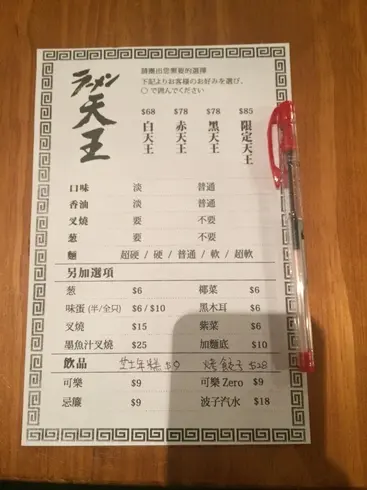 ラーメン
天王
請圈出您需要的選擇
下記よりお客様のお好みを選び、
○で囲んでください
$68 $78 $78 $85
白天王 赤天王 黑天王 限定天王
口味 淡 普通
香油 淡 普通
叉燒 要 不要
葱 要 不要
麵 超硬 / 硬 / 普通 / 軟 / 超軟
另加選項
葱 $6 椰菜 $6
味蛋 (半/全只) $6 / $10 黑木耳 $6
叉燒 $15 紫菜 $6
墨魚汁叉燒 $25 加麵底 $10
飲品 芝士年糕 $9 燒餃子 $28
可樂 $9 可樂 Zero $9
忌廉 $9 波子汽水 $18